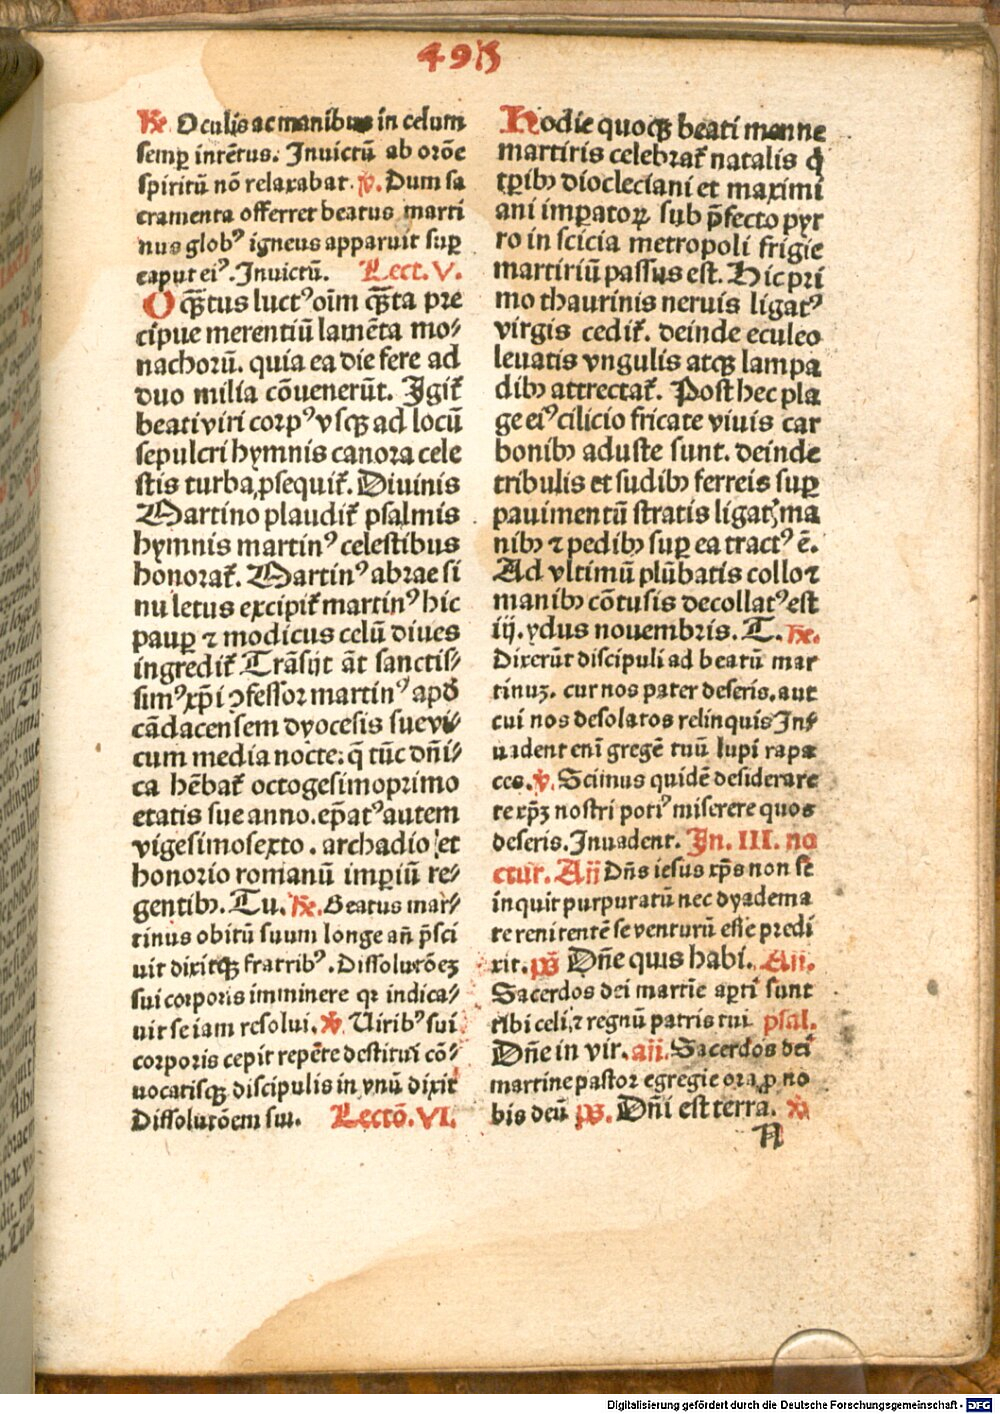 495
℟. Oculis ac manibus in celum
semꝑ intētus. Inuictū ab orōe
spiritū nō relaxabat. ℣. Dum sa
cramenta offerret beatus marti
nus globꝰ igneus apparuit suꝑ
caput eiꝰ. Inuictū. Lect. V.
O qͣꝫtus luctꝰ oīm qͣꝫta pre
cipue merentiū lamēta mo⸗
nachorū. quia ea die fere ad
duo milia cōuenerūt. Igit᷑
beati viri corpꝰ vsqꝫ ad locū
sepulcri hymnis canora cele
stis turba ꝓsequit᷑. Diuinis
Martino plaudit᷑ psalmis
hymnis martinꝰ celestibus
honorat᷑. Martinꝰ abrae si
nu letus excipit᷑ martinꝰ hic
pauꝑ ⁊ modicus celū diues
ingredit᷑ Trāsijt āt sanctis⸗
simꝰ xp̄i ꝯfessor martinꝰ apd̄
cādacensem dyocesis sue vi⸗
cum media nocte: q̄ tūc dn̄i⸗
ca hēbat᷑ octogesimoprimo
etatis sue anno. ep̄atꝰ autem
vigesimosexto. archadio et
honorio romanū imꝑiū re⸗
gentibꝫ. Tu. ℟. Beatus mar⸗
tinus obitū suum longe an̄ p̄sci
uit dixitqꝫ fratribꝰ. Dissolutōeꝫ
sui corporis imminere qr indica⸗
uit se iam resolui. ℣ Uiribꝰ sui
corporis cepit repēte destitui cō⸗
uocatisqꝫ discipulis in vnū dixit
Dissolutōem sui. Lectō. VI.
Hodie quoqꝫ beati menne
martiris celebrat᷑ natalis q̇
tꝑibꝫ diocleciani et maximi
ani imꝑatoꝝ sub p̄fecto pyr
ro in scicia metropoli frigie
martiriū passus est. Hic pri
mo thaurinis neruis ligatꝰ
virgis cedit᷑. deinde eculeo
leuatis vngulis atqꝫ lampa
dibꝫ attrectat᷑. Post hec pla
ge eiꝰ cilicio fricate viuis car
bonibꝫ aduste sunt. deinde
tribulis et sudibꝫ ferreis suꝑ
pauimentū stratis ligatꝫ ma
nibꝫ ⁊ pedibꝫ suꝑ ea tractꝰ ē.
Ad vltimū plūbatis collo ⁊
manibꝫ cōtusis decollatꝰ est
iij. ydus nouembris. T. ℟.
Dixerūt discipuli ad beatū mar
tinuꝫ. cur nos pater deseris. aut
cui nos desolatos relinquis In⸗
uadent eni gregē tuū lupi rapa
ces. ℣. Scimus quidē desiderare
te xp̄ꝫ nostri potiꝰ miserere quos
deseris. Inuadent. In. III. no
ctur. An̄ Dn̄s iesus xp̄s non se
inquit purpuratū nec dyadema
te renitentē se venturū esse predi
xit. ps̄ Dn̄e quis habi. An̄.
Sacerdos dei martīe aꝑti sunt
tibi celi ⁊ regnū patris tui psal.
Dn̄e in vir. an̄. Sacerdos dei
martine pastor egregie ora ꝓ no
bis deū ps̄. Dn̄i est terra. ℣
N
Digitalisierung gefördert durch die Deutsche Forschungsgemeinschaft - DFG